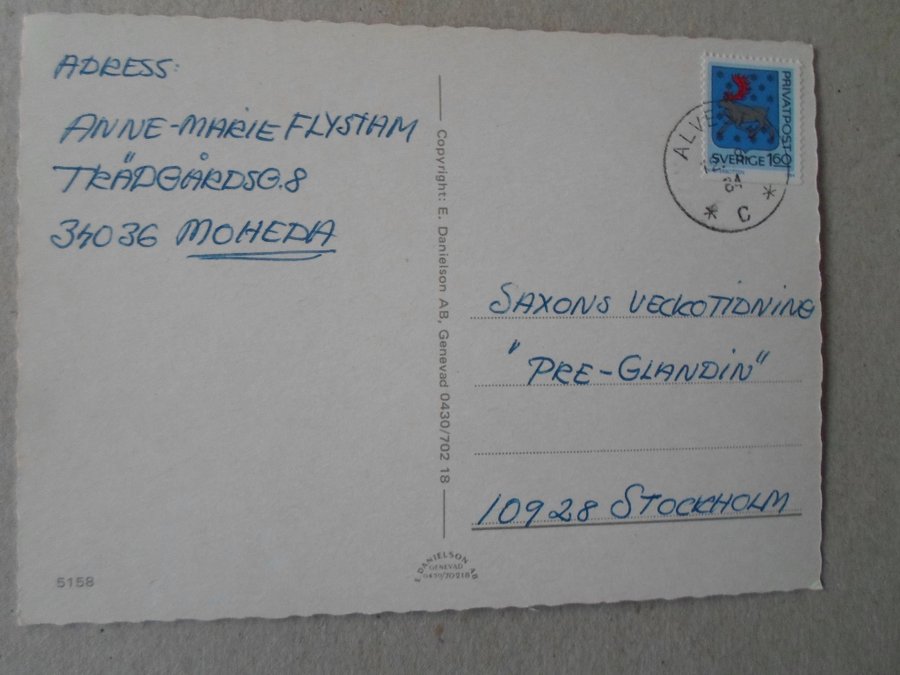 ADRESS:
ANNE-MARIE FLYSTAM
TRÄDGÅRDSG. 8
34036 MOHEDA
5158
Copyright: E. Danielson AB, Genevad 0430/702 18
E. DANIELSON AB
GENEVAD
0430/70218
PRIVATPOST
SVERIGE 160
ALVE
C
SAXONS VECKOTIDNING
"PRE-GLANDIN"
10928 STOCKHOLM